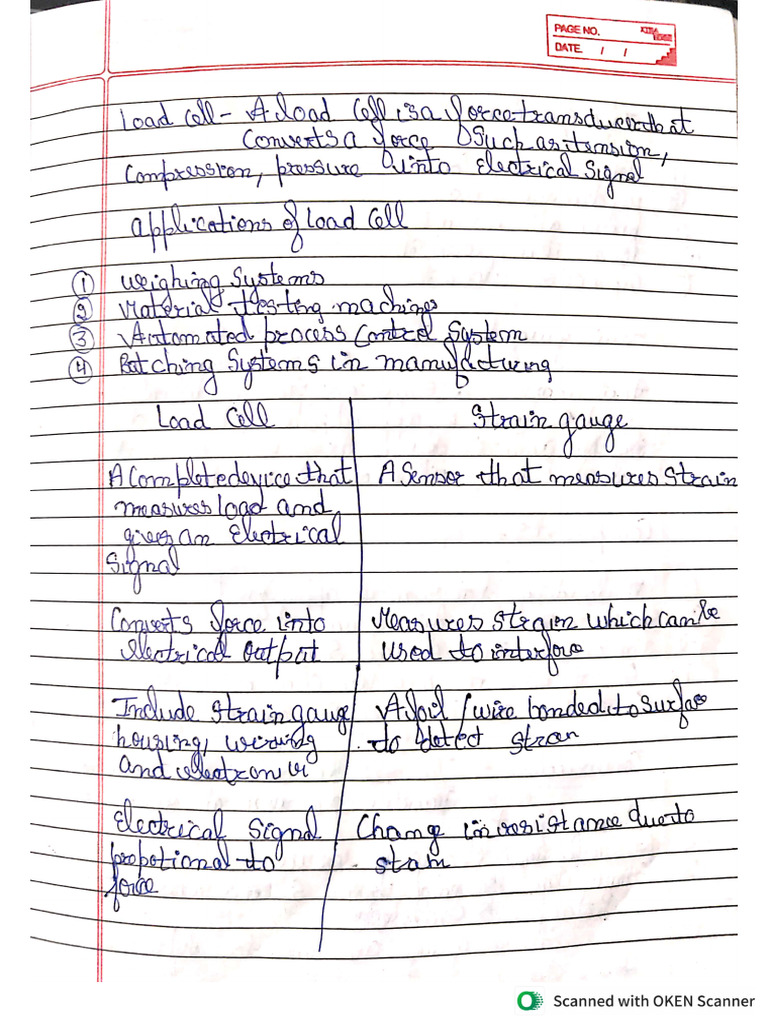 PAGE NO.
DATE. / /
Load cell - A load cell is a force transducer that
converts a force such as tension,
compression, pressure into electrical signal
Applications of Load cell
① Weighing Systems
② Material testing machines
③ Automated process control System
④ Batching Systems in manufacturing
Load Cell Strain gauge
A complete device that A Sensor that measures strain
measures load and
gives an electrical
signal
Converts force into Measures strain which can be
electrical output used to interface
Include strain gauge A foil / wire bonded to surface
housing, wiring to detect stran
and electron
Electrical signal Change in resistance due to
propotional to stam
force
Scanned with OKEN Scanner